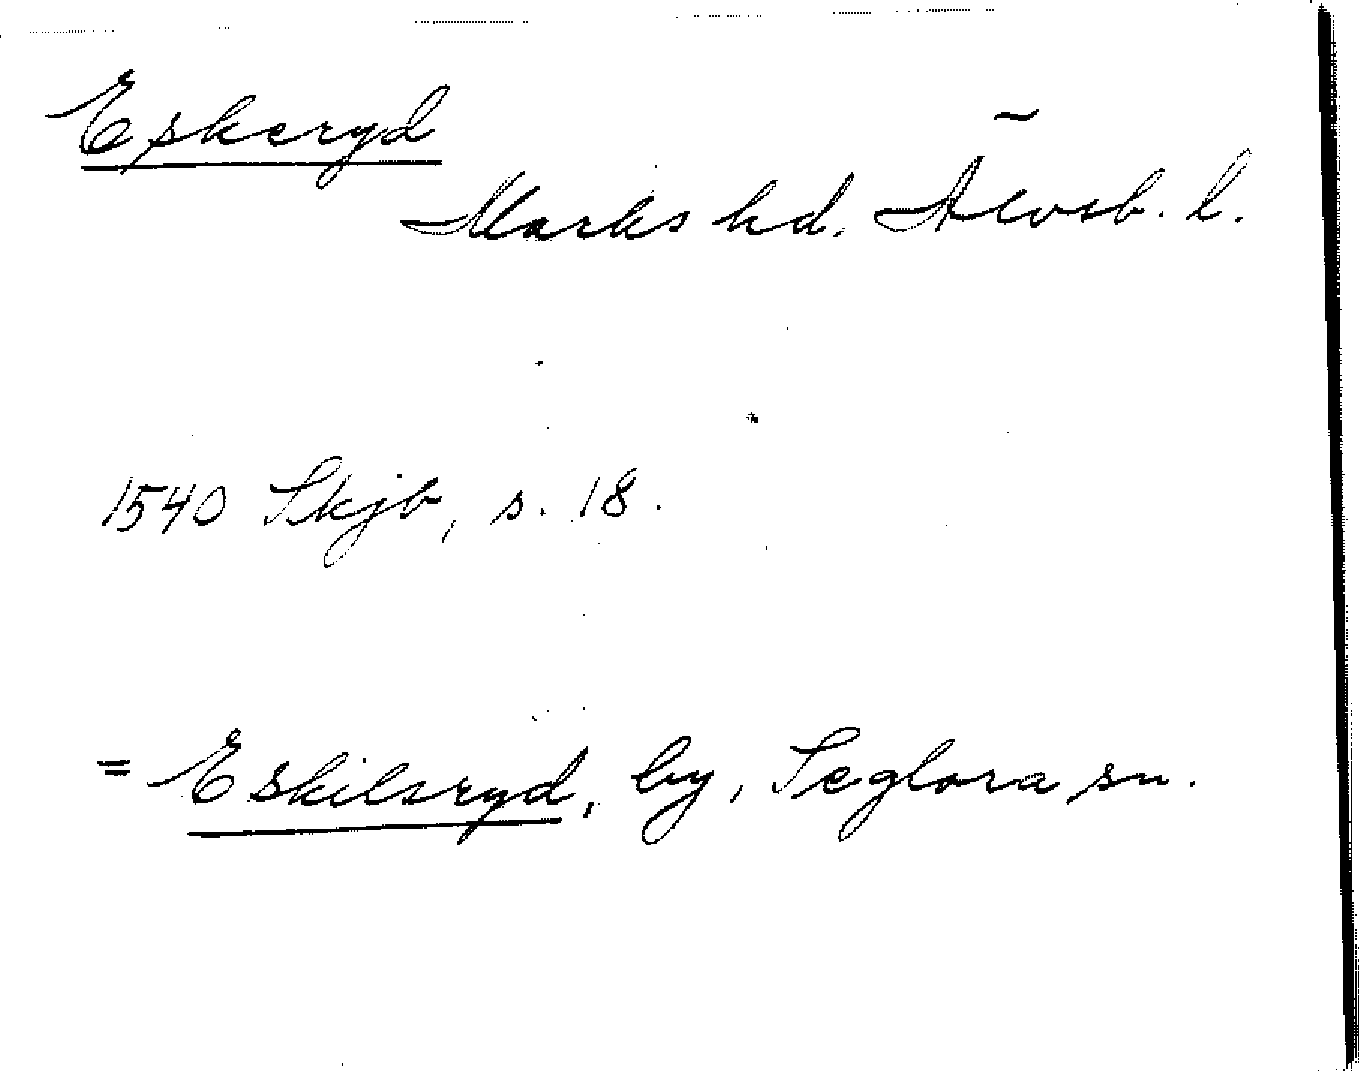 Eskeryd
Marks hd. Älvsb. l.
1540 Skjb, s. 18.
= Eskilsryd, by, Seglora sn.